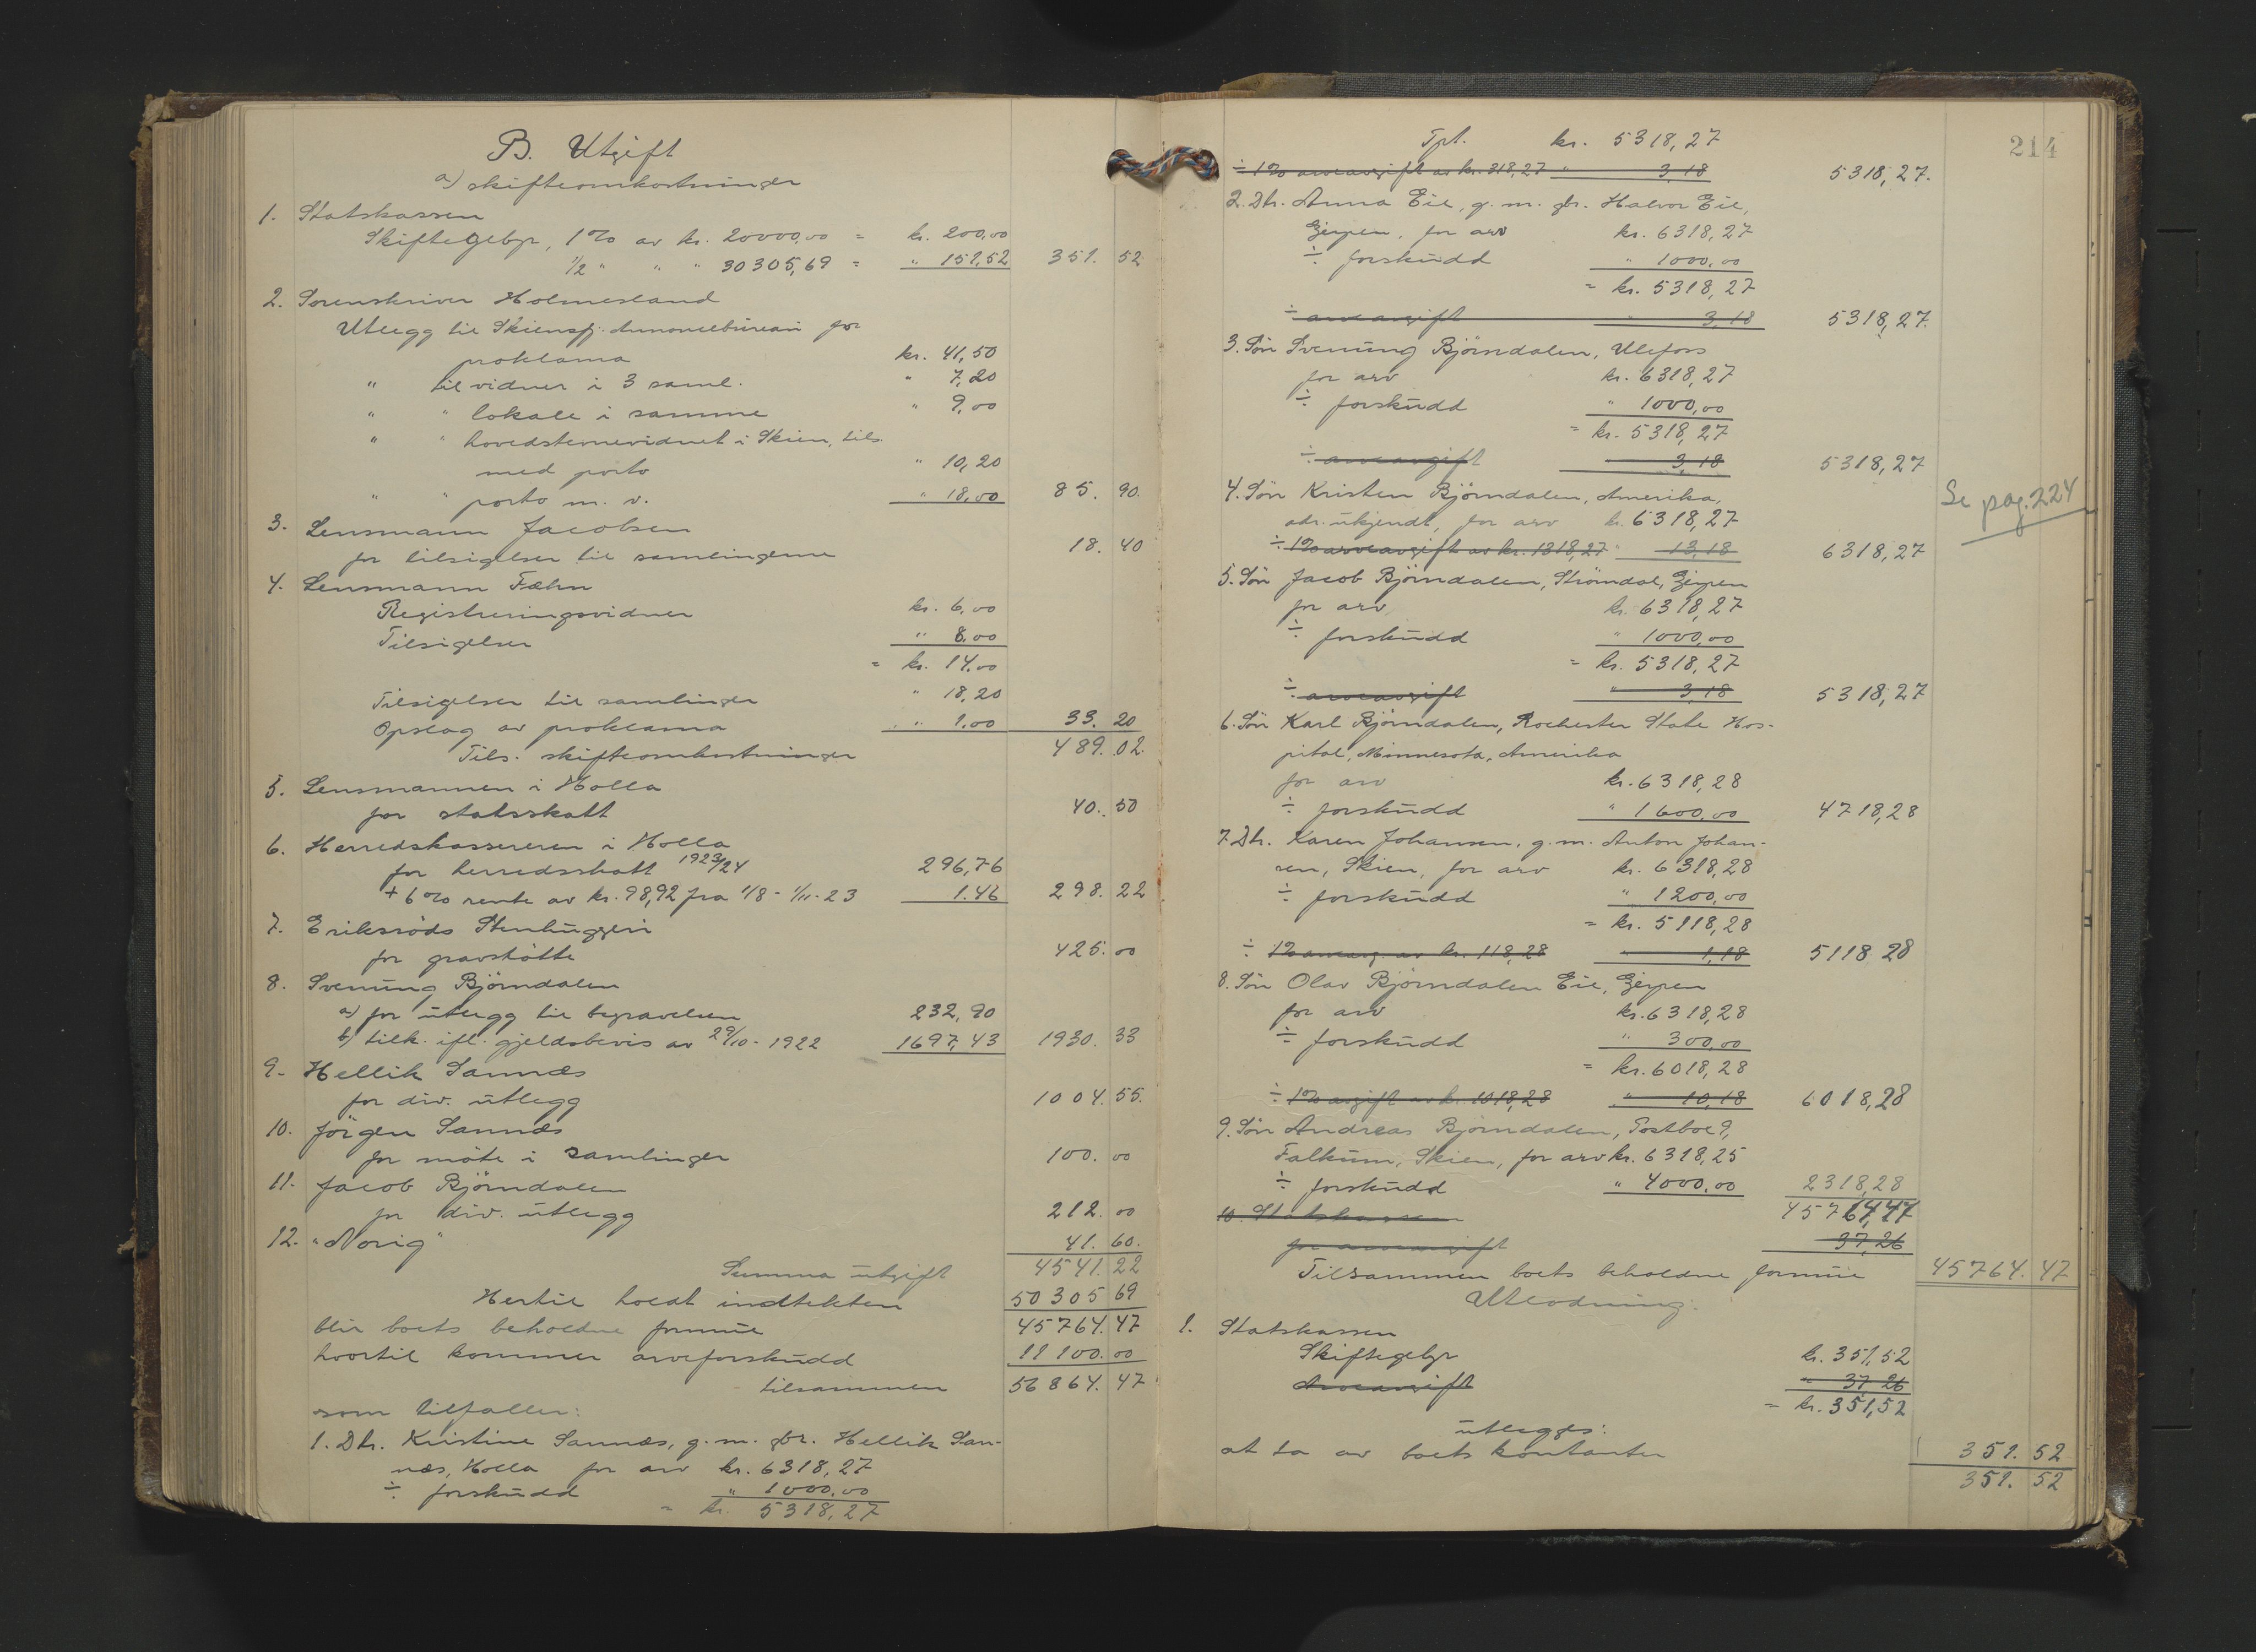 B. Utgift
a) skifteomkostninger
1. Statskassen
Skiftegebyr, 1% av kr. 20000,00 = kr. 200,00
1/2 " " " 30305,69 = " 151,52 351. 52
2. Sorenskriver Holmesland
Utlegg til Skiensfj. Annoncebureau for
proklama kr. 41,50
" til vidner i 3 saml. " 7,20
" " lokale i samme " 9,00
" " hovedstevnevidnet i Skien, tils.
med porto " 10,20
" " porto m. v. " 18,00 85. 90.
3. Lensmann Jacobsen
for tilsigelser til samlingerne 18. 40
4. Lensmann Fæhn
Registreringsvidner kr. 6,00
Tilsigelser " 8,00
= kr. 14,00
Tilsigelser til samlinger " 18,20
Opslag av proklama " 1,00 33. 20
Tils. skifteomkostninger 489. 02.
5. Lensmannen i Holla
for statsskatt 40. 50
6. Herredskassereren i Holla
for herredsskatt 1923/24 296,76
+ 6% rente av kr. 98,92 fra 1/8 - 1/11-23 1.46 298. 22
7. Eriksröds Stenhuggeri
for gravstötte 425. 00
8. Svenung Björndalen
a) for utlegg til begravelsen 232,90
b) tilk. ifl. gjeldsbevis av 29/10 - 1922 1697,43 1930. 33
9. Hellik Sannæs
for div. utlegg 1004. 55.
10. Jörgen Sannæs
for möte i samlinger 100. 00
11. Jacob Björndalen
for div. utlegg 212. 00
12. "Norig" 41. 60.
Summa utgift 4541. 22
Hertil holdt indtekten 50305 69
blir boets beholdne formue 45764. 47
hvortil kommer arveforskudd 11100. 00
tilsammen 56864. 47
som tilfaller:
1. Dtr. Kristine Sannæs, g. m. gbr. Hellik San-
næs, Holla for arv kr. 6318,27
÷ forskudd " 1000,00
= kr. 5318,27
214
Tpt. kr. 5318,27
÷ 1% arveavgift av kr. 318,27 " 3,18 5318,27.
2. Dtr. Anna Eie, g. m. gbr. Halvor Eie,
Gjerpen, for arv kr. 6318,27
÷ forskudd " 1000,00
= kr. 5318,27
÷ arveavgift " 3,18 5318,27.
3. Sön Svenung Björndalen, Ulefoss
for arv kr. 6318,27
÷ forskudd " 1000,00
= kr. 5318,27
÷ arveavgift 3,18 5318,27
4. Sön Kristen Björndalen, Amerika,
adr. ukjendt, for arv kr. 6318,27
÷ 1% arveavgift av kr. 1318,27 " 13,18 6318,27
Se pag. 224
5. Sön Jacob Björndalen, Strömdal, Gjerpen
for arv kr. 6318,27
÷ forskudd " 1000,00
= kr. 5318,27
÷ arveavgift " 3,18 5318,27
6. Sön Karl Björndalen, Rochester State Hos-
pital, Minnesota, Amerika
for arv kr. 6318,28
÷ forskudd " 1600,00 4718,28
7. Dtr. Karen Johansen, g. m. Anton Johan-
sen, Skien, for arv kr. 6318,28
÷ forskudd " 1200,00
= kr. 5118,28
÷ 1% arveavg. av kr. 118,28 " 1,18 5118 28
8. Sön Olav Björndalen Eie, Gjerpen
for arv kr. 6318,28
÷ forskudd " 300,00
= kr. 6018,28
÷ 1% avgift av kr. 1018,28 " 10,18 6018,28
9. Sön Andreas Björndalen, Postboe 9,
Falkum, Skien, for arv kr. 6318,25
÷ forskudd " 4000,00 2318,28
10. Statskassen 45764,47
for arveavgift 37,26
Tilsammen boets beholdne formue 45764. 47
Utlodning:
1. Statskassen
Skiftegebyr kr. 351,52
Arveavgift " 37,26
= kr. 351,52
utlegges:
at ta av boets kontanter 351. 52
351. 52